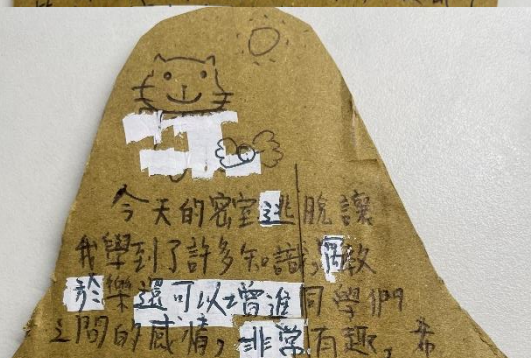 今天的密室逃脫讓
我學到了許多知識,寓教
於樂還可以增進同學們
之間的感情,非常有趣,希